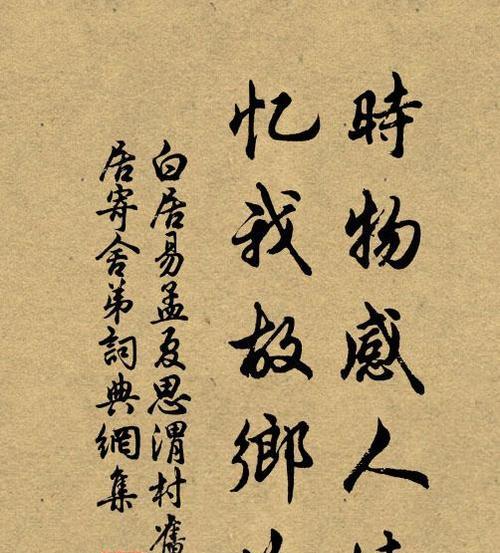 時物感人
忆我故鄉
白居易孟夏思渭村舊
居寄舍弟詞典網集